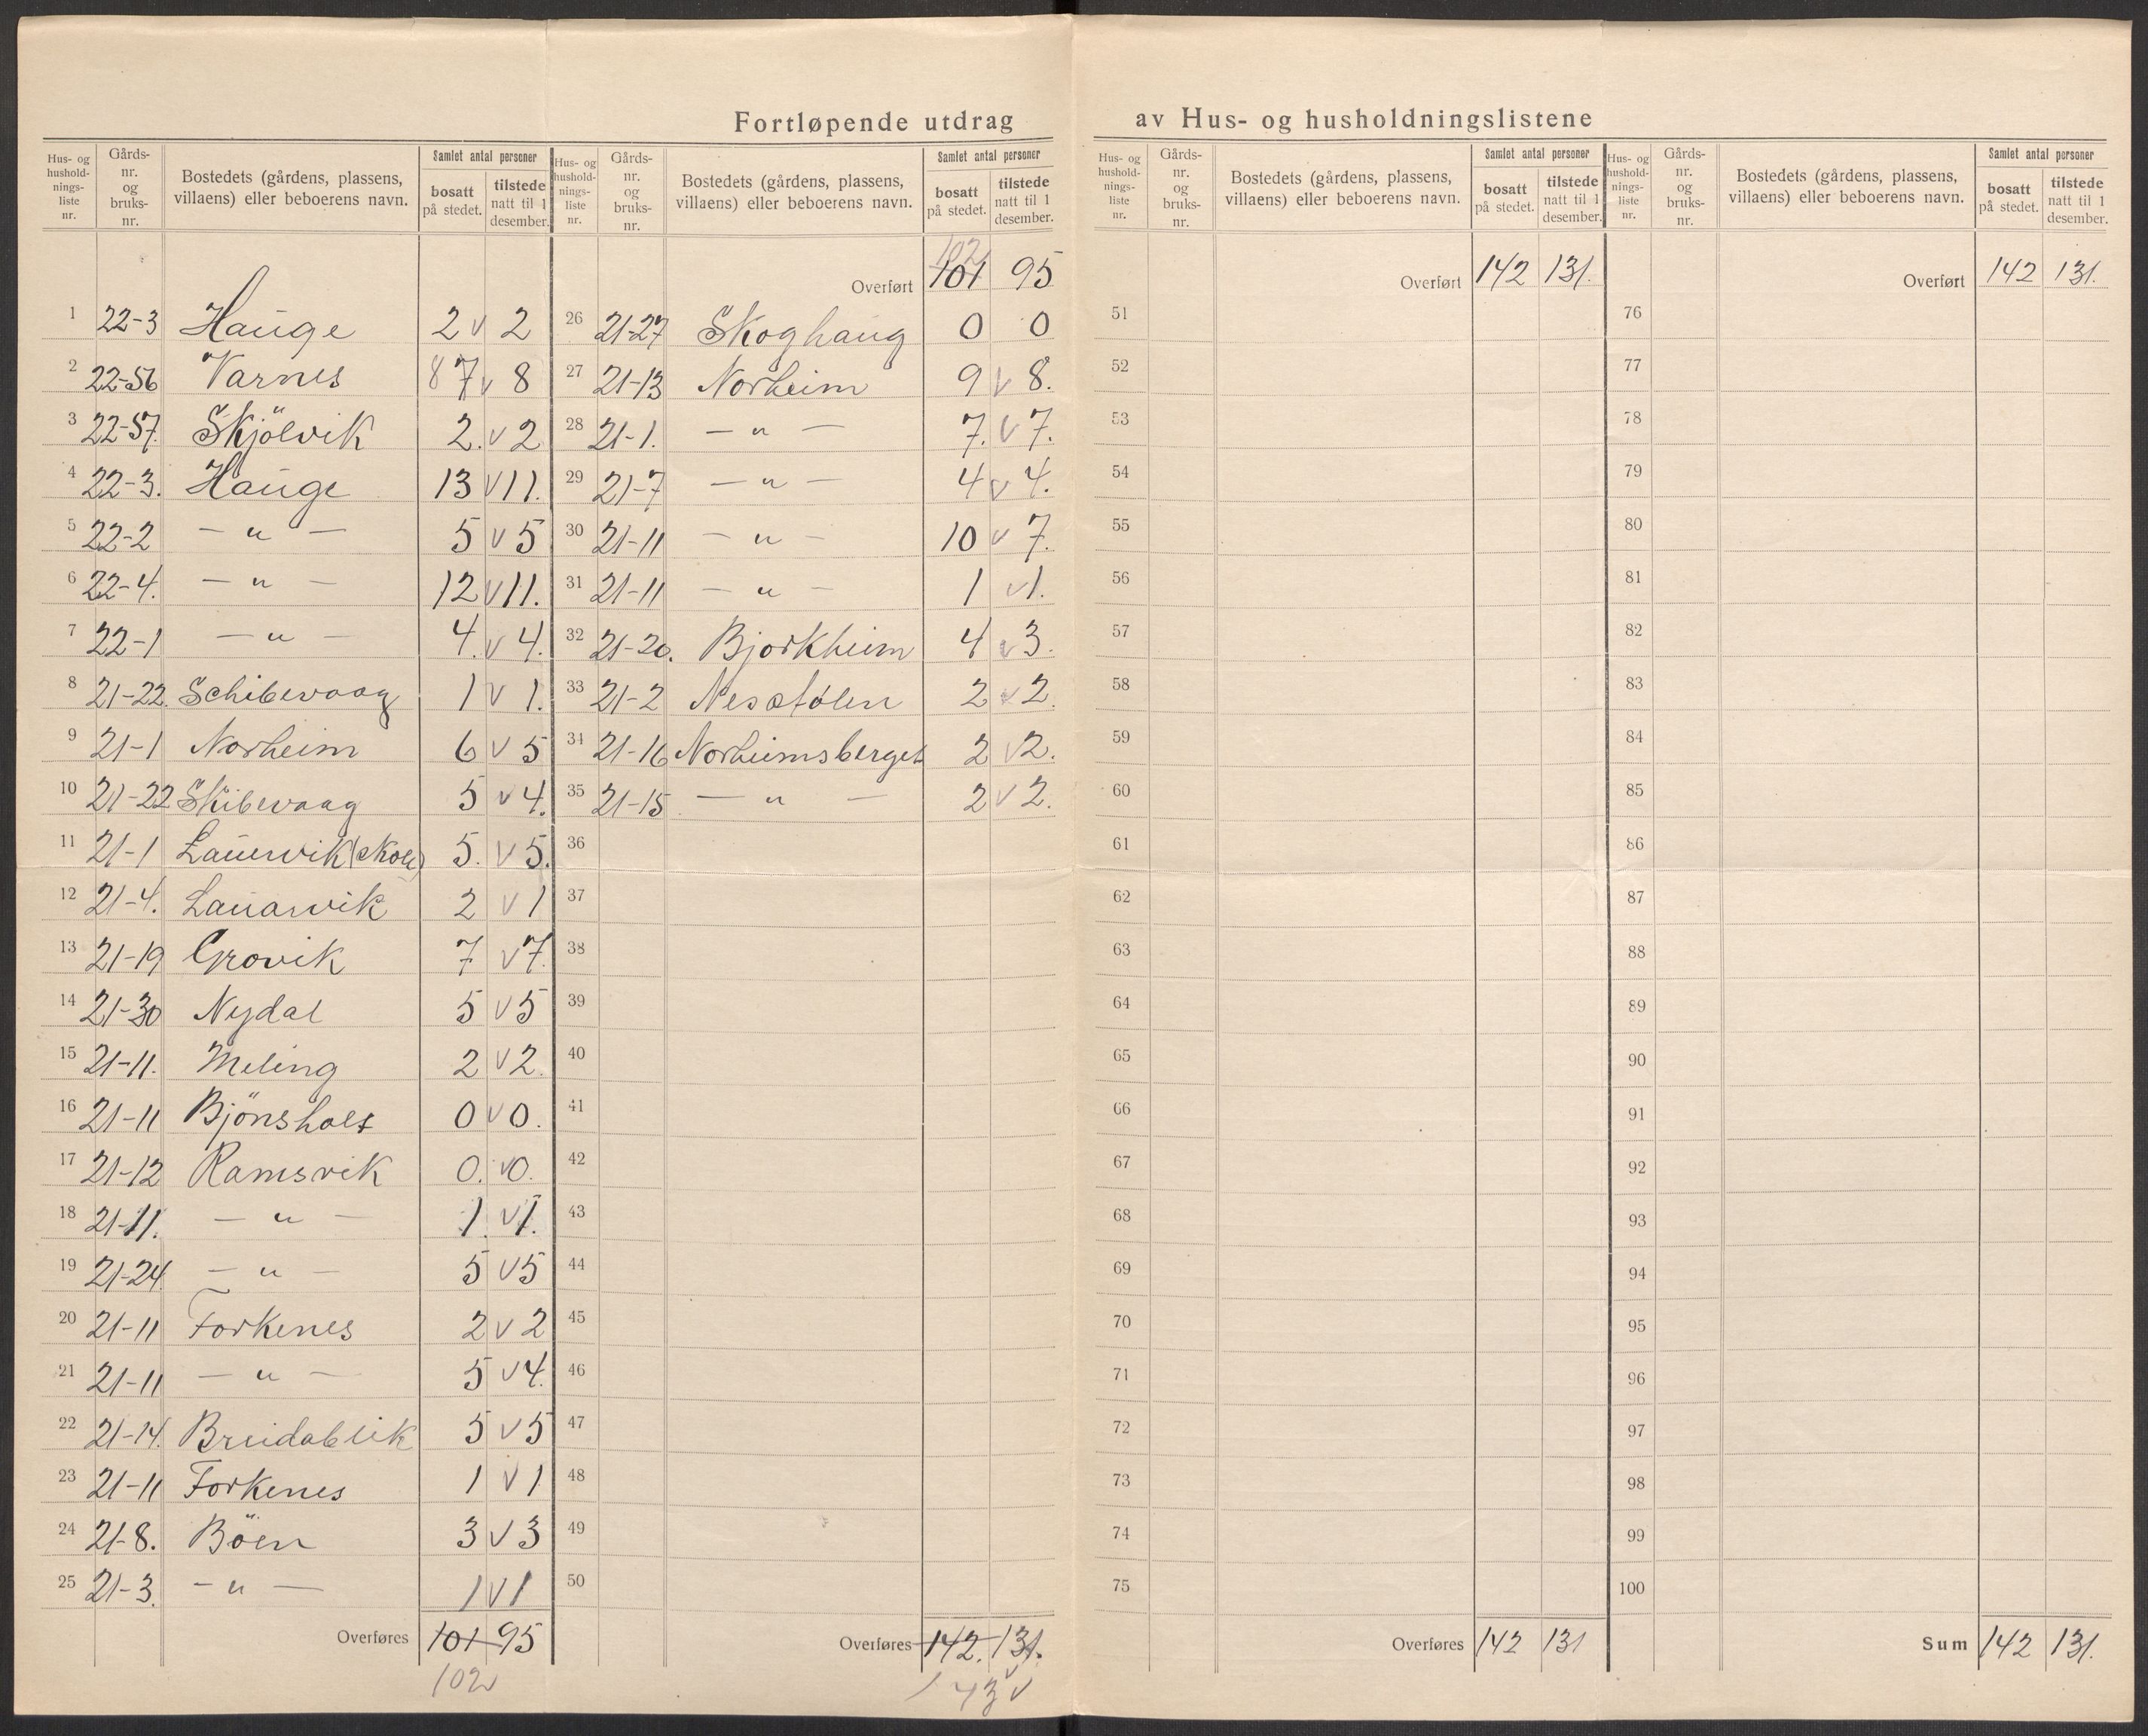 Fortløpende utdrag av Hus- og husholdningslistene
Hus- og husholdningsliste nr. | Gårdsnr. og bruksnr. | Bostedets (gårdens, plassens, villaens) eller beboerens navn. | Samlet antal personer | bosatt på stedet. | tilstede natt til 1 desember.
1 22-3 Hauge 2 v 2
2 22-56 Varnes 8 7 v 8
3 22-57. Skjölvik 2. v 2
4 22-3. Hauge 13 v 11.
5 22-2 — " — 5 v 5
6 22-4. — " — 12 v 11.
7 22-1 — " — 4. v 4.
8 21-22. Schibevaag 1 v 1.
9 21-1 Norheim 6 v 5
10 21-22 Skibevaag 5 v 4.
11 21-1 Lauervik (skole) 5. v 5.
12 21-4. Lauarvik 2 v 1
13 21-19 Grovik 7 v 7.
14 21-30 Nydal 5 v 5
15 21-11. Meling 2 v 2.
16 21-11 Bjönsholt 0 v 0.
17 21-12 Ramsvik 0. v 0.
18 21-11. — " — 1. v 1.
19 21-24. — " — 5 v 5
20 21-11 Forkenes 2 v 2
21 21-11 — " — 5 v 4.
22 21-14. Breidablik 5 v 5
23 21-11 Forkenes 1 v 1
24 21-8. Böen 3 v 3
25 21-3. — " — 1 v 1
Overføres 101 95
102
Hus- og husholdningsliste nr. | Gårdsnr. og bruksnr. | Bostedets (gårdens, plassens, villaens) eller beboerens navn. | Samlet antal personer | bosatt på stedet. | tilstede natt til 1 desember.
102
Overført 101 95
26 21-27 Skoghaug 0 0
27 21-13 Norheim 9 v 8.
28 21-1. — " — 7. v 7.
29 21-7 — " — 4 v 4.
30 21-11 — " — 10 v 7.
31 21-11 — " — 1 v 1.
32 21-20. Bjorkheim 4 v 3.
33 21-2 Nesstølen 2 v 2.
34 21-16 Norheimsberget 2 v 2.
35 21-15 — " — 2 v 2.
36
37
38
39
40
41
42
43
44
45
46
47
48
49
50
Overføres 142. 131.
143 v
Hus- og husholdningsliste nr. | Gårdsnr. og bruksnr. | Bostedets (gårdens, plassens, villaens) eller beboerens navn. | Samlet antal personer | bosatt på stedet. | tilstede natt til 1 desember.
Overført 142 131.
51
52
53
54
55
56
57
58
59
60
61
62
63
64
65
66
67
68
69
70
71
72
73
74
75
Overføres 142 131
Hus- og husholdningsliste nr. | Gårdsnr. og bruksnr. | Bostedets (gårdens, plassens, villaens) eller beboerens navn. | Samlet antal personer | bosatt på stedet. | tilstede natt til 1 desember.
Overført 142 131.
76
77
78
79
80
81
82
83
84
85
86
87
88
89
90
91
92
93
94
95
96
97
98
99
100
Sum 142 131.